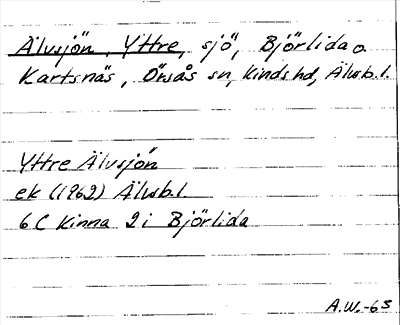 Älvsjön, Yttre, sjö, Björlida o.
Kartsnäs, Örsås sn, Kinds hd, Älvsb.l.
Yttre Älvsjön
ek (1962) Älvsb.l.
6C Kinna 2i Björlida
A.W.-63